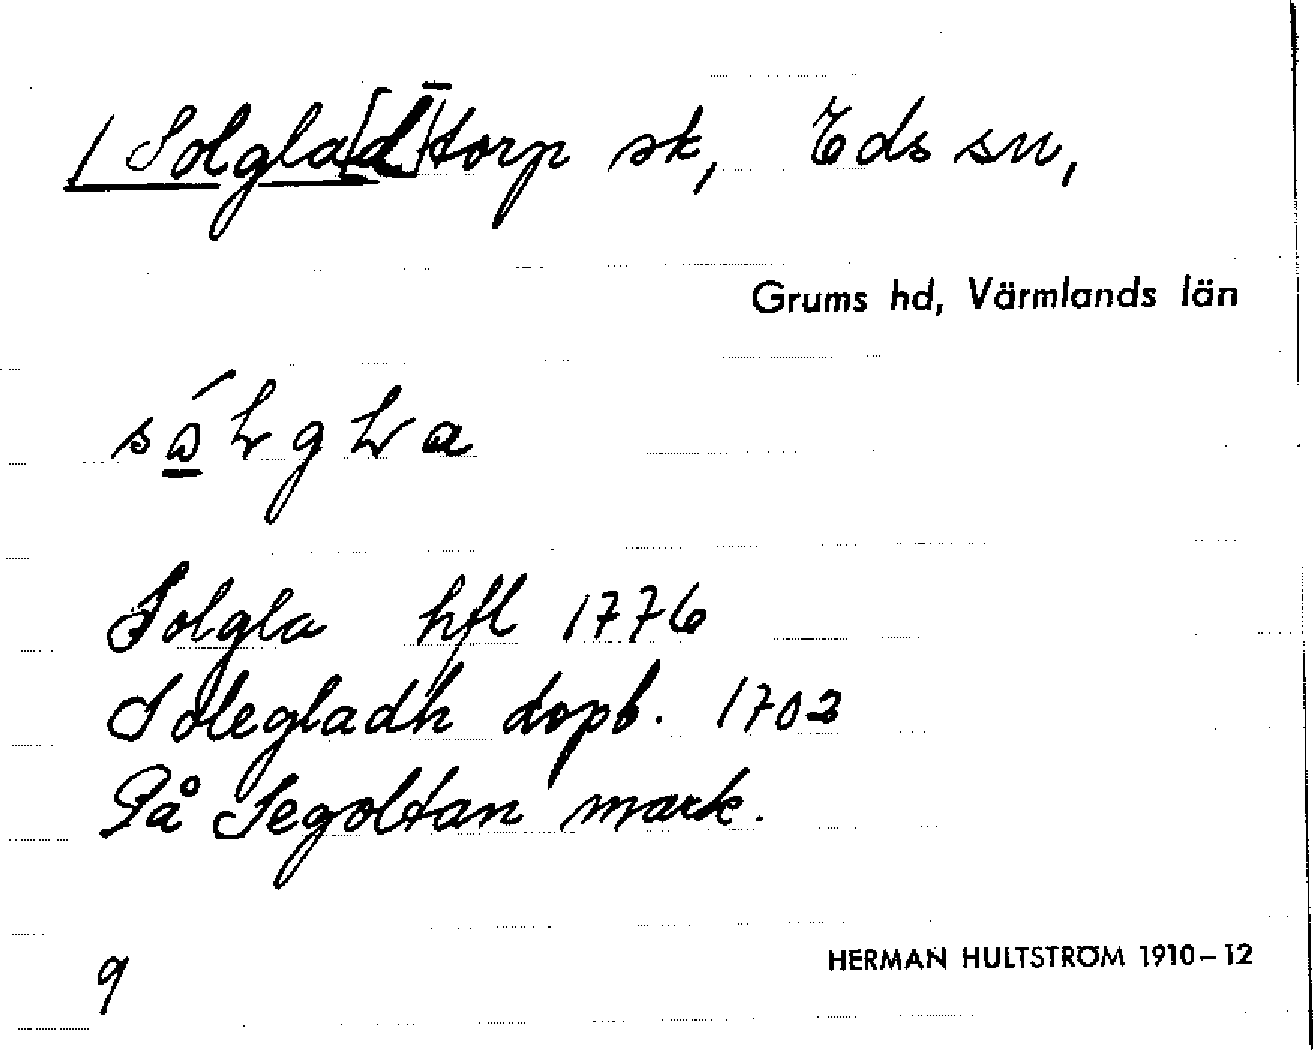 / Solgla[d] torp sk, Eds sn,
Grums hd, Värmlands län
Solgla hfl 1776
Solegladh dopb. 1703
På Segoltan mark.
9
HERMAN HULTSTRÖM 1910–12